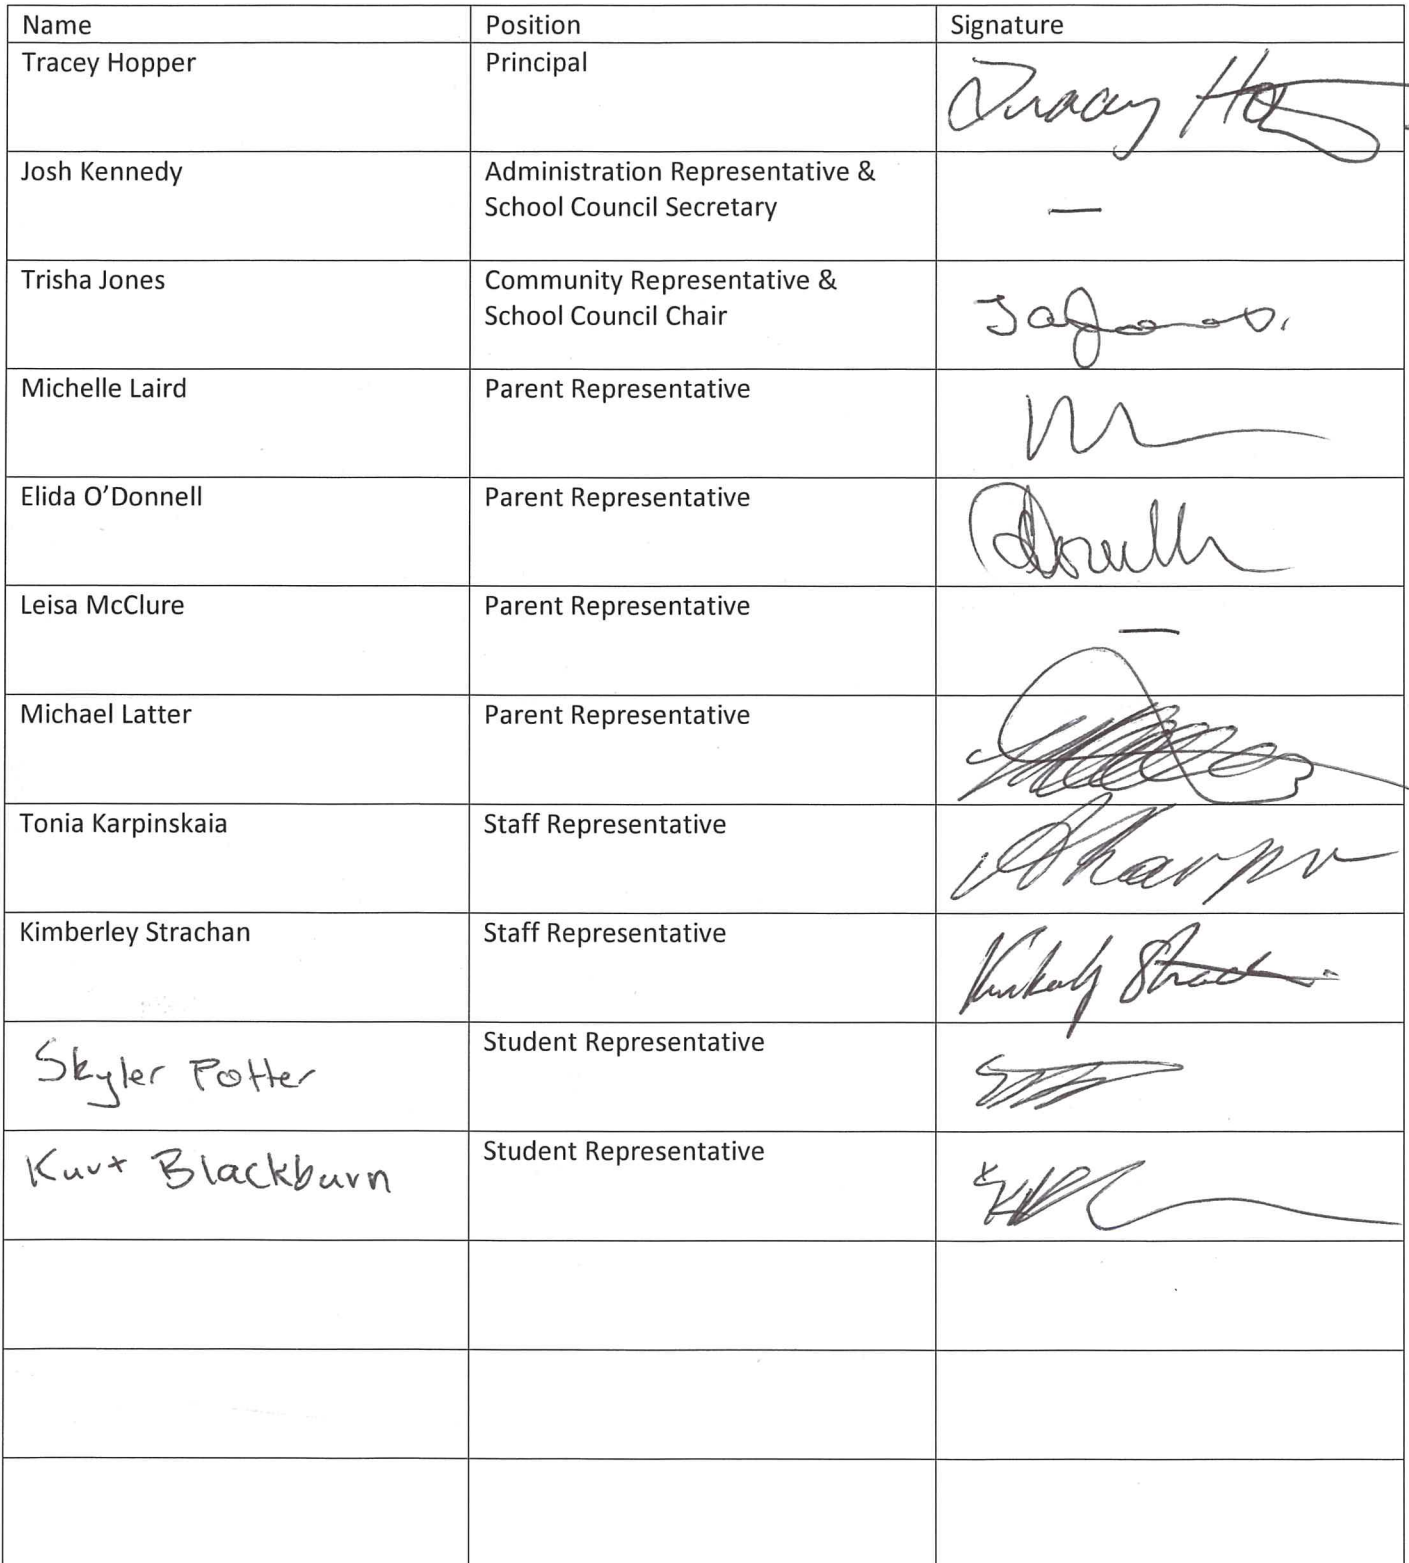 Name Position Signature
Tracey Hopper Principal Tracey
Josh Kennedy Administration Representative &
School Council Secretary —
Trisha Jones Community Representative &
School Council Chair
Michelle Laird Parent Representative
Elida O'Donnell Parent Representative
Leisa McClure Parent Representative —
Michael Latter Parent Representative
Tonia Karpinskaia Staff Representative
Kimberley Strachan Staff Representative
Skyler Potter Student Representative
Kurt Blackburn Student Representative